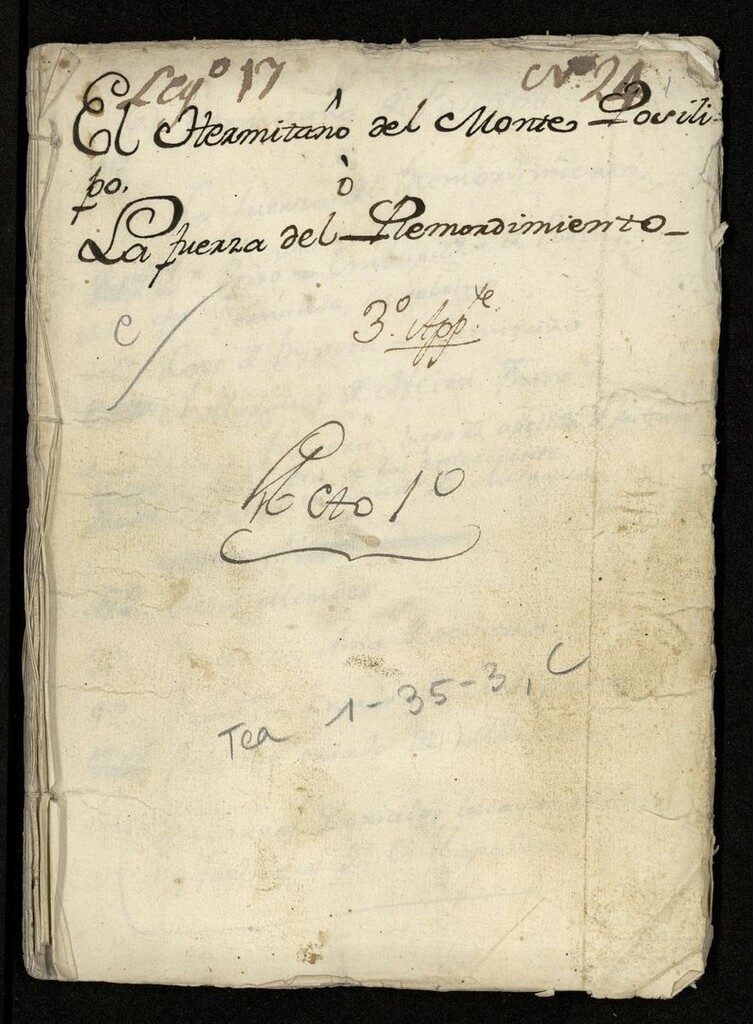 Leg.º 17 Nº 24
El Hermitaño del Monte Posili-
po.
ò
La fuerza del Remordimiento
3º. App.te
C
Acto 1º
Tea 1-35-3, C